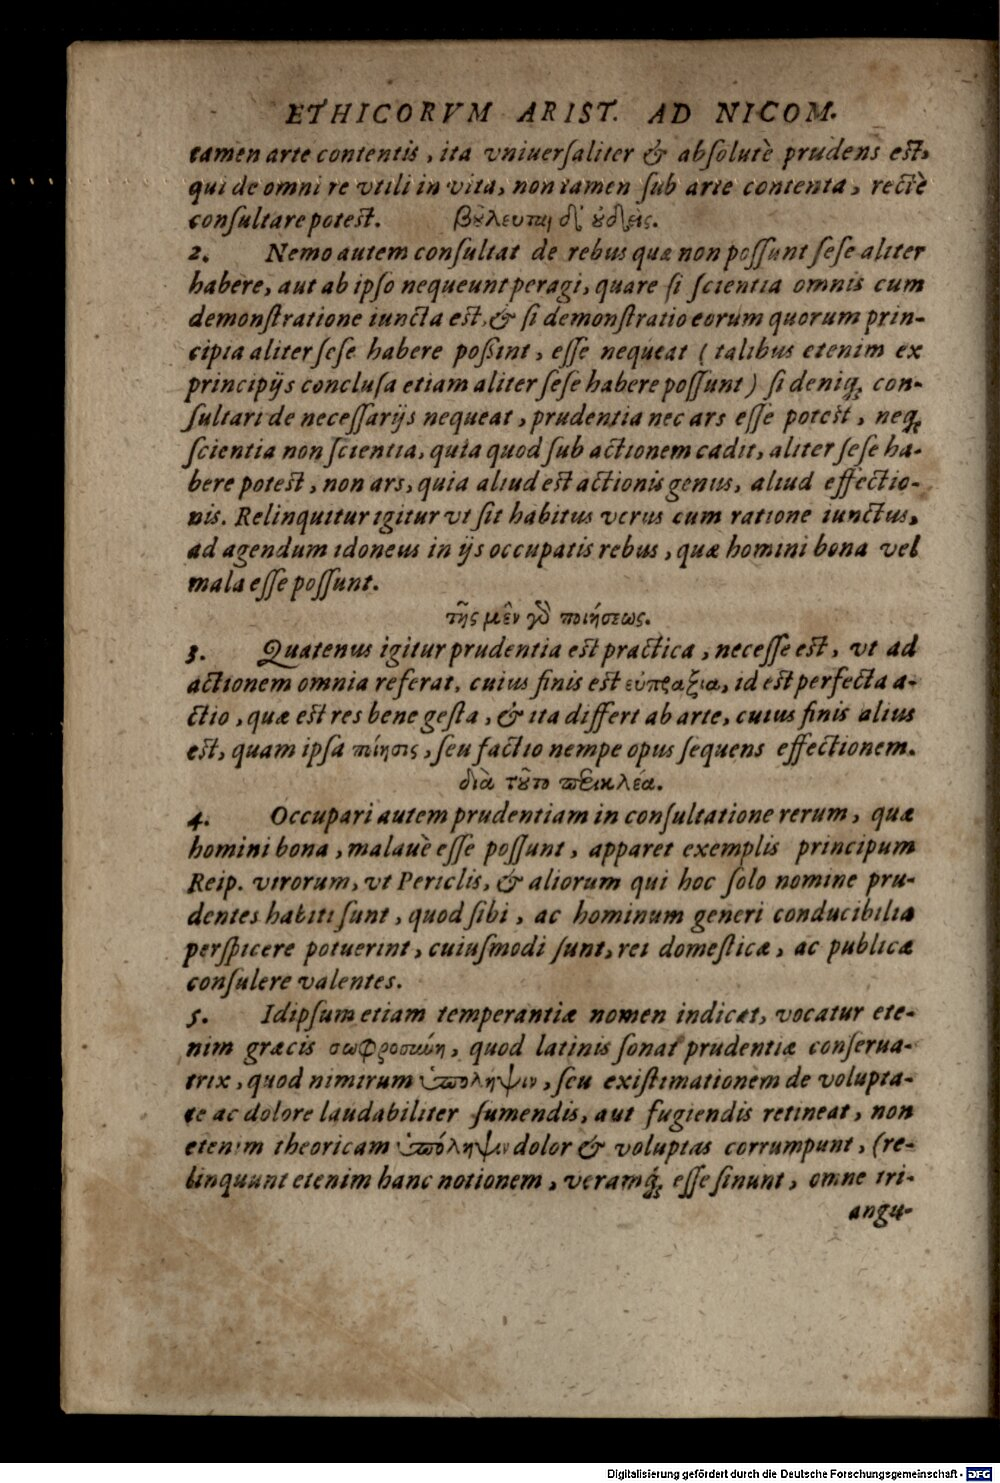 ETHICORVM ARIST. AD NICOM.
tamen arte contentis, ita vniuersaliter & absolutè prudens est,
qui de omni re vtili in vita, non tamen sub arte contenta, rectè
consultare potest. βȣλευται δ' ȣ̓δεὶς.
2. Nemo autem consultat de rebus quæ non possunt sese aliter
habere, aut ab ipso nequeunt peragi, quare si scientia omnis cum
demonstratione iuncta est, & si demonstratio eorum quorum prin-
cipia aliter sese habere possint, esse nequeat (talibus etenim ex
principijs conclusa etiam aliter sese habere possunt) si deniq; con-
sultari de necessarijs nequeat, prudentia nec ars esse potest, neq;
scientia non scientia, quia quod sub actionem cadit, aliter sese ha-
bere potest, non ars, quia aliud est actionis genus, aliud effectio-
nis. Relinquitur igitur vt sit habitus verus cum ratione iunctus,
ad agendum idoneus in ijs occupatis rebus, quæ homini bona vel
mala esse possunt.
τῆς μὲν γὸ ποιήσεως.
3. Quatenus igitur prudentia est practica, necesse est, vt ad
actionem omnia referat, cuius finis est εὐπραξια, id est perfecta a-
ctio, quæ est res bene gesta, & ita differt ab arte, cuius finis alius
est, quam ipsa ποίησις, seu factio nempe opus sequens effectionem.
διὰ τȣ͂το περικλέα.
4. Occupari autem prudentiam in consultatione rerum, quæ
homini bona, malauè esse possunt, apparet exemplis principum
Reip. virorum, vt Periclis, & aliorum qui hoc solo nomine pru-
dentes habiti sunt, quod sibi, ac hominum generi conducibilia
perspicere potuerint, cuiusmodi sunt, rei domesticæ, ac publicæ
consulere valentes.
5. Idipsum etiam temperantiæ nomen indicat, vocatur ete-
nim græcis σωφροσύνη, quod latinis sonat prudentiæ conserua-
trix, quod nimirum ὑπόληψιν, seu existimationem de volupta-
te ac dolore laudabiliter sumendis, aut fugiendis retineat, non
etenim theoricam ὑπόληψιν dolor & voluptas corrumpunt, (re-
linquunt etenim hanc notionem, veramq; esse sinunt, omne tri-
angu-
Digitalisierung gefördert durch die Deutsche Forschungsgemeinschaft - DFG